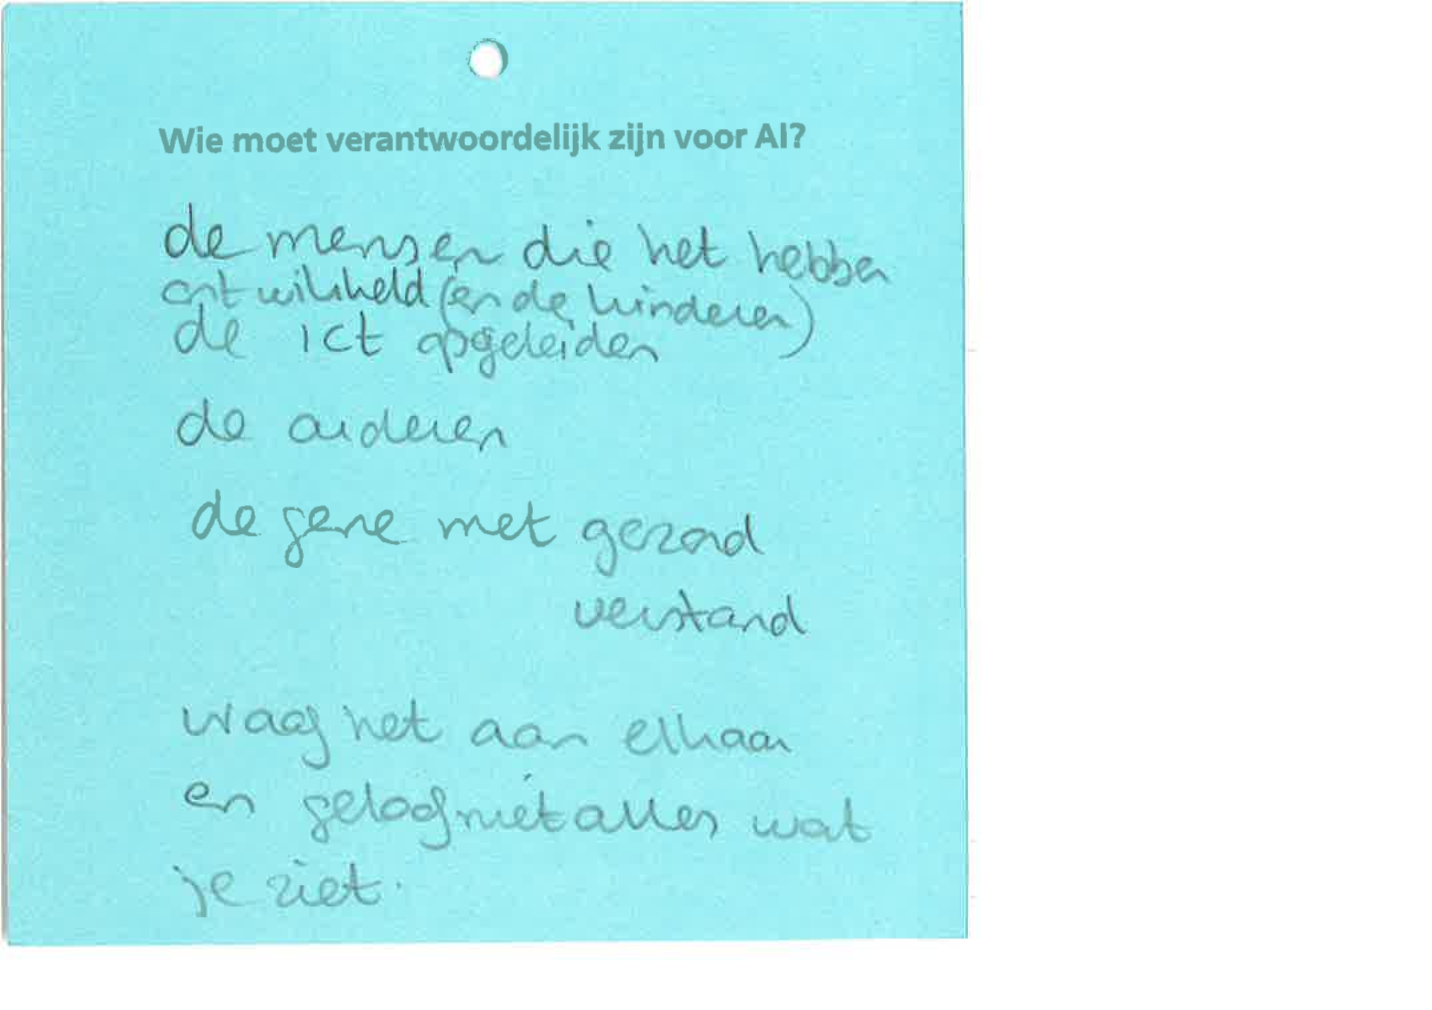 Wie moet verantwoordelijk zijn voor AI?
de mensen die het hebben
ontwikkeld (en de kinderen)
de ict opgeleiden
de ouderen
de gene met gezond
verstand
vraag het aan elkaar
en geloof niet alles wat
je ziet.